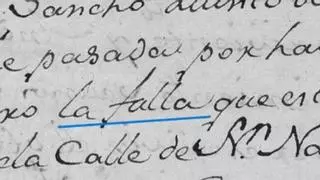 Sancho
pasada por ha
la falla que es
ela Calle de N.ª Na